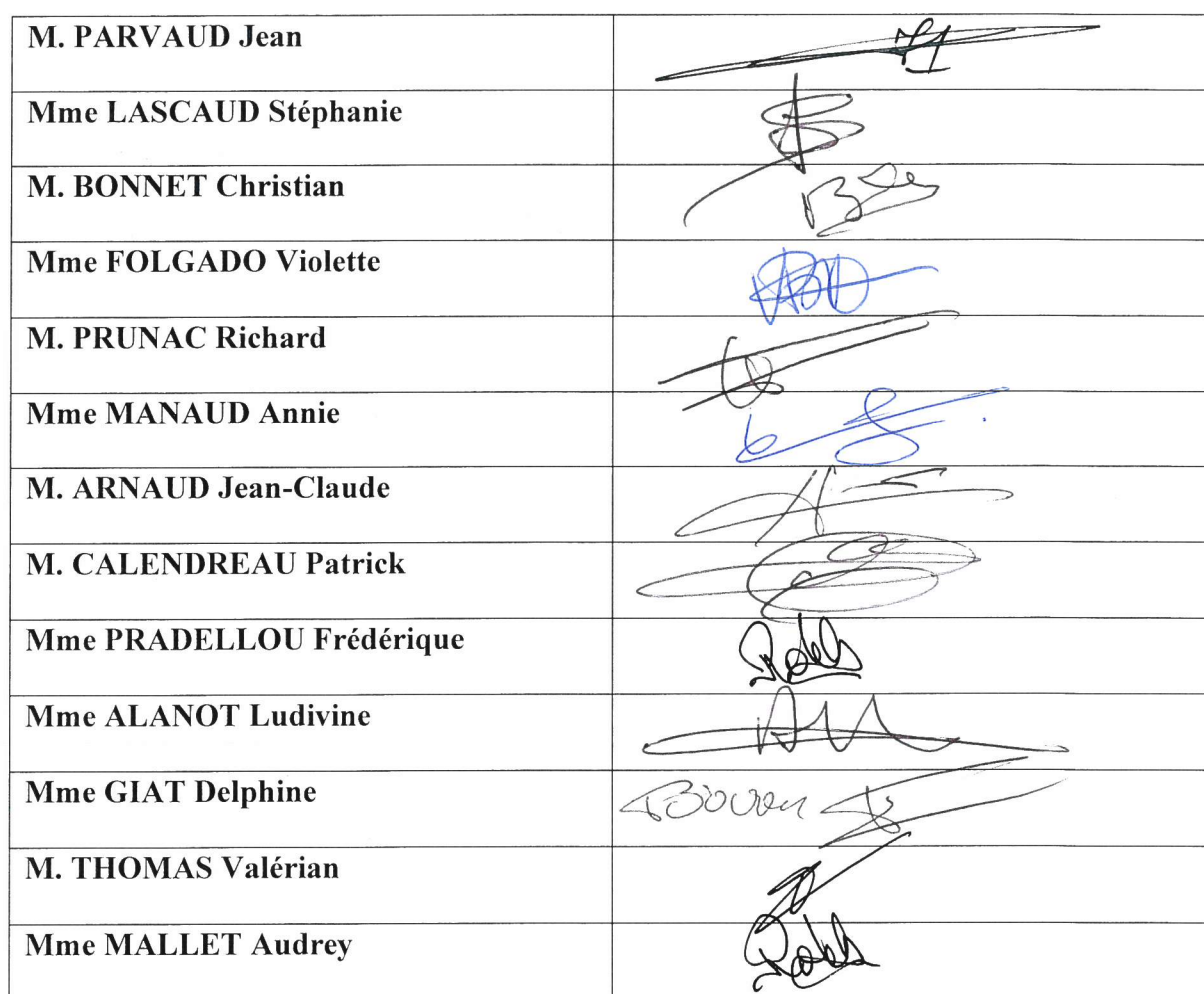 M. PARVAUD Jean
Mme LASCAUD Stéphanie
M. BONNET Christian
Mme FOLGADO Violette
M. PRUNAC Richard
Mme MANAUD Annie
M. ARNAUD Jean-Claude
M. CALENDREAU Patrick
Mme PRADELLOU Frédérique
Mme ALANOT Ludivine
Mme GIAT Delphine
M. THOMAS Valérian
Mme MALLET Audrey